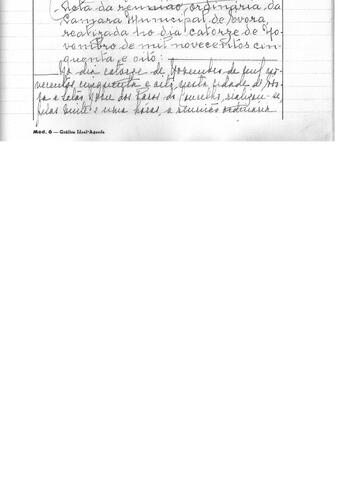 Acta da reunião ordinária da
Câmara Municipal de
realizada no dia catorze de No-
vembro de mil novecentos cin-
quenta e oito:
No dia catorze de Novembro de mil no-
vecentos cinquenta e oito, nesta cidade de
e Salão Nobre dos Paços do Concelho, realizou-se,
pelas vinte e uma horas, a reunião ordinária
Mod. 6 — Gráfica Ideal-Águeda